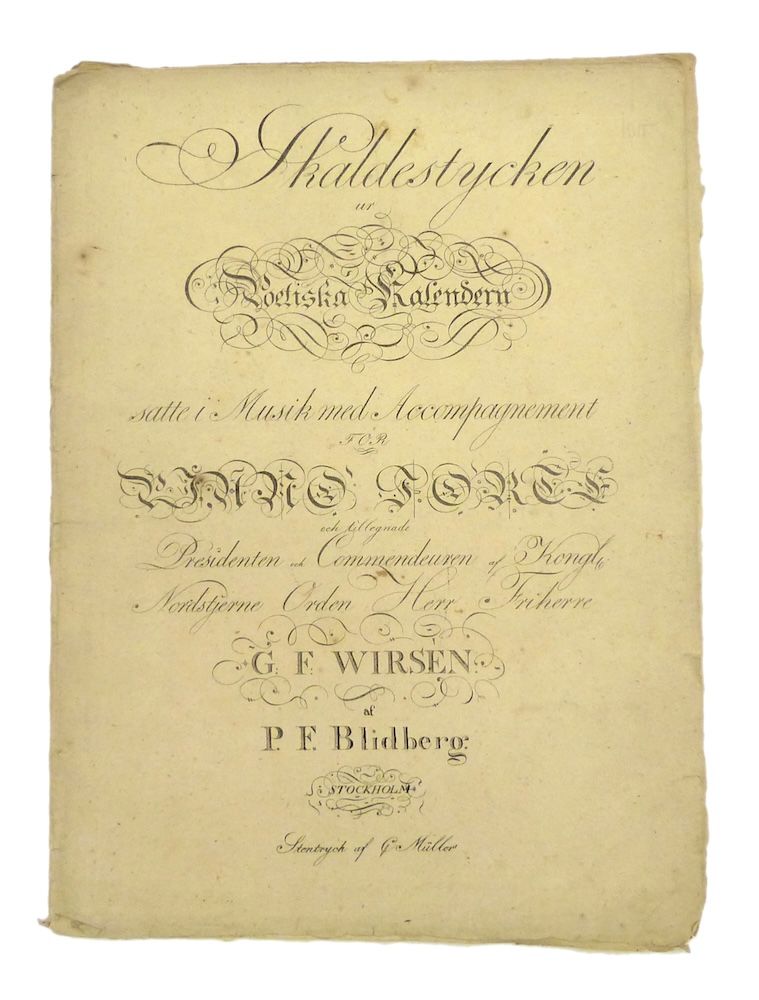 Skaldestycken
ur
Poetiska Kalendern
satte i Musik med Accompagnement
FÖR
PIANO FORTE
och tillegnade
Presidenten och Commendeuren af Kongl:
Nordstjerne Orden Herr Friherre
G. F. WIRSÉN.
af
P. F. Blidberg.
STOCKHOLM
Stentryck af G. Müller